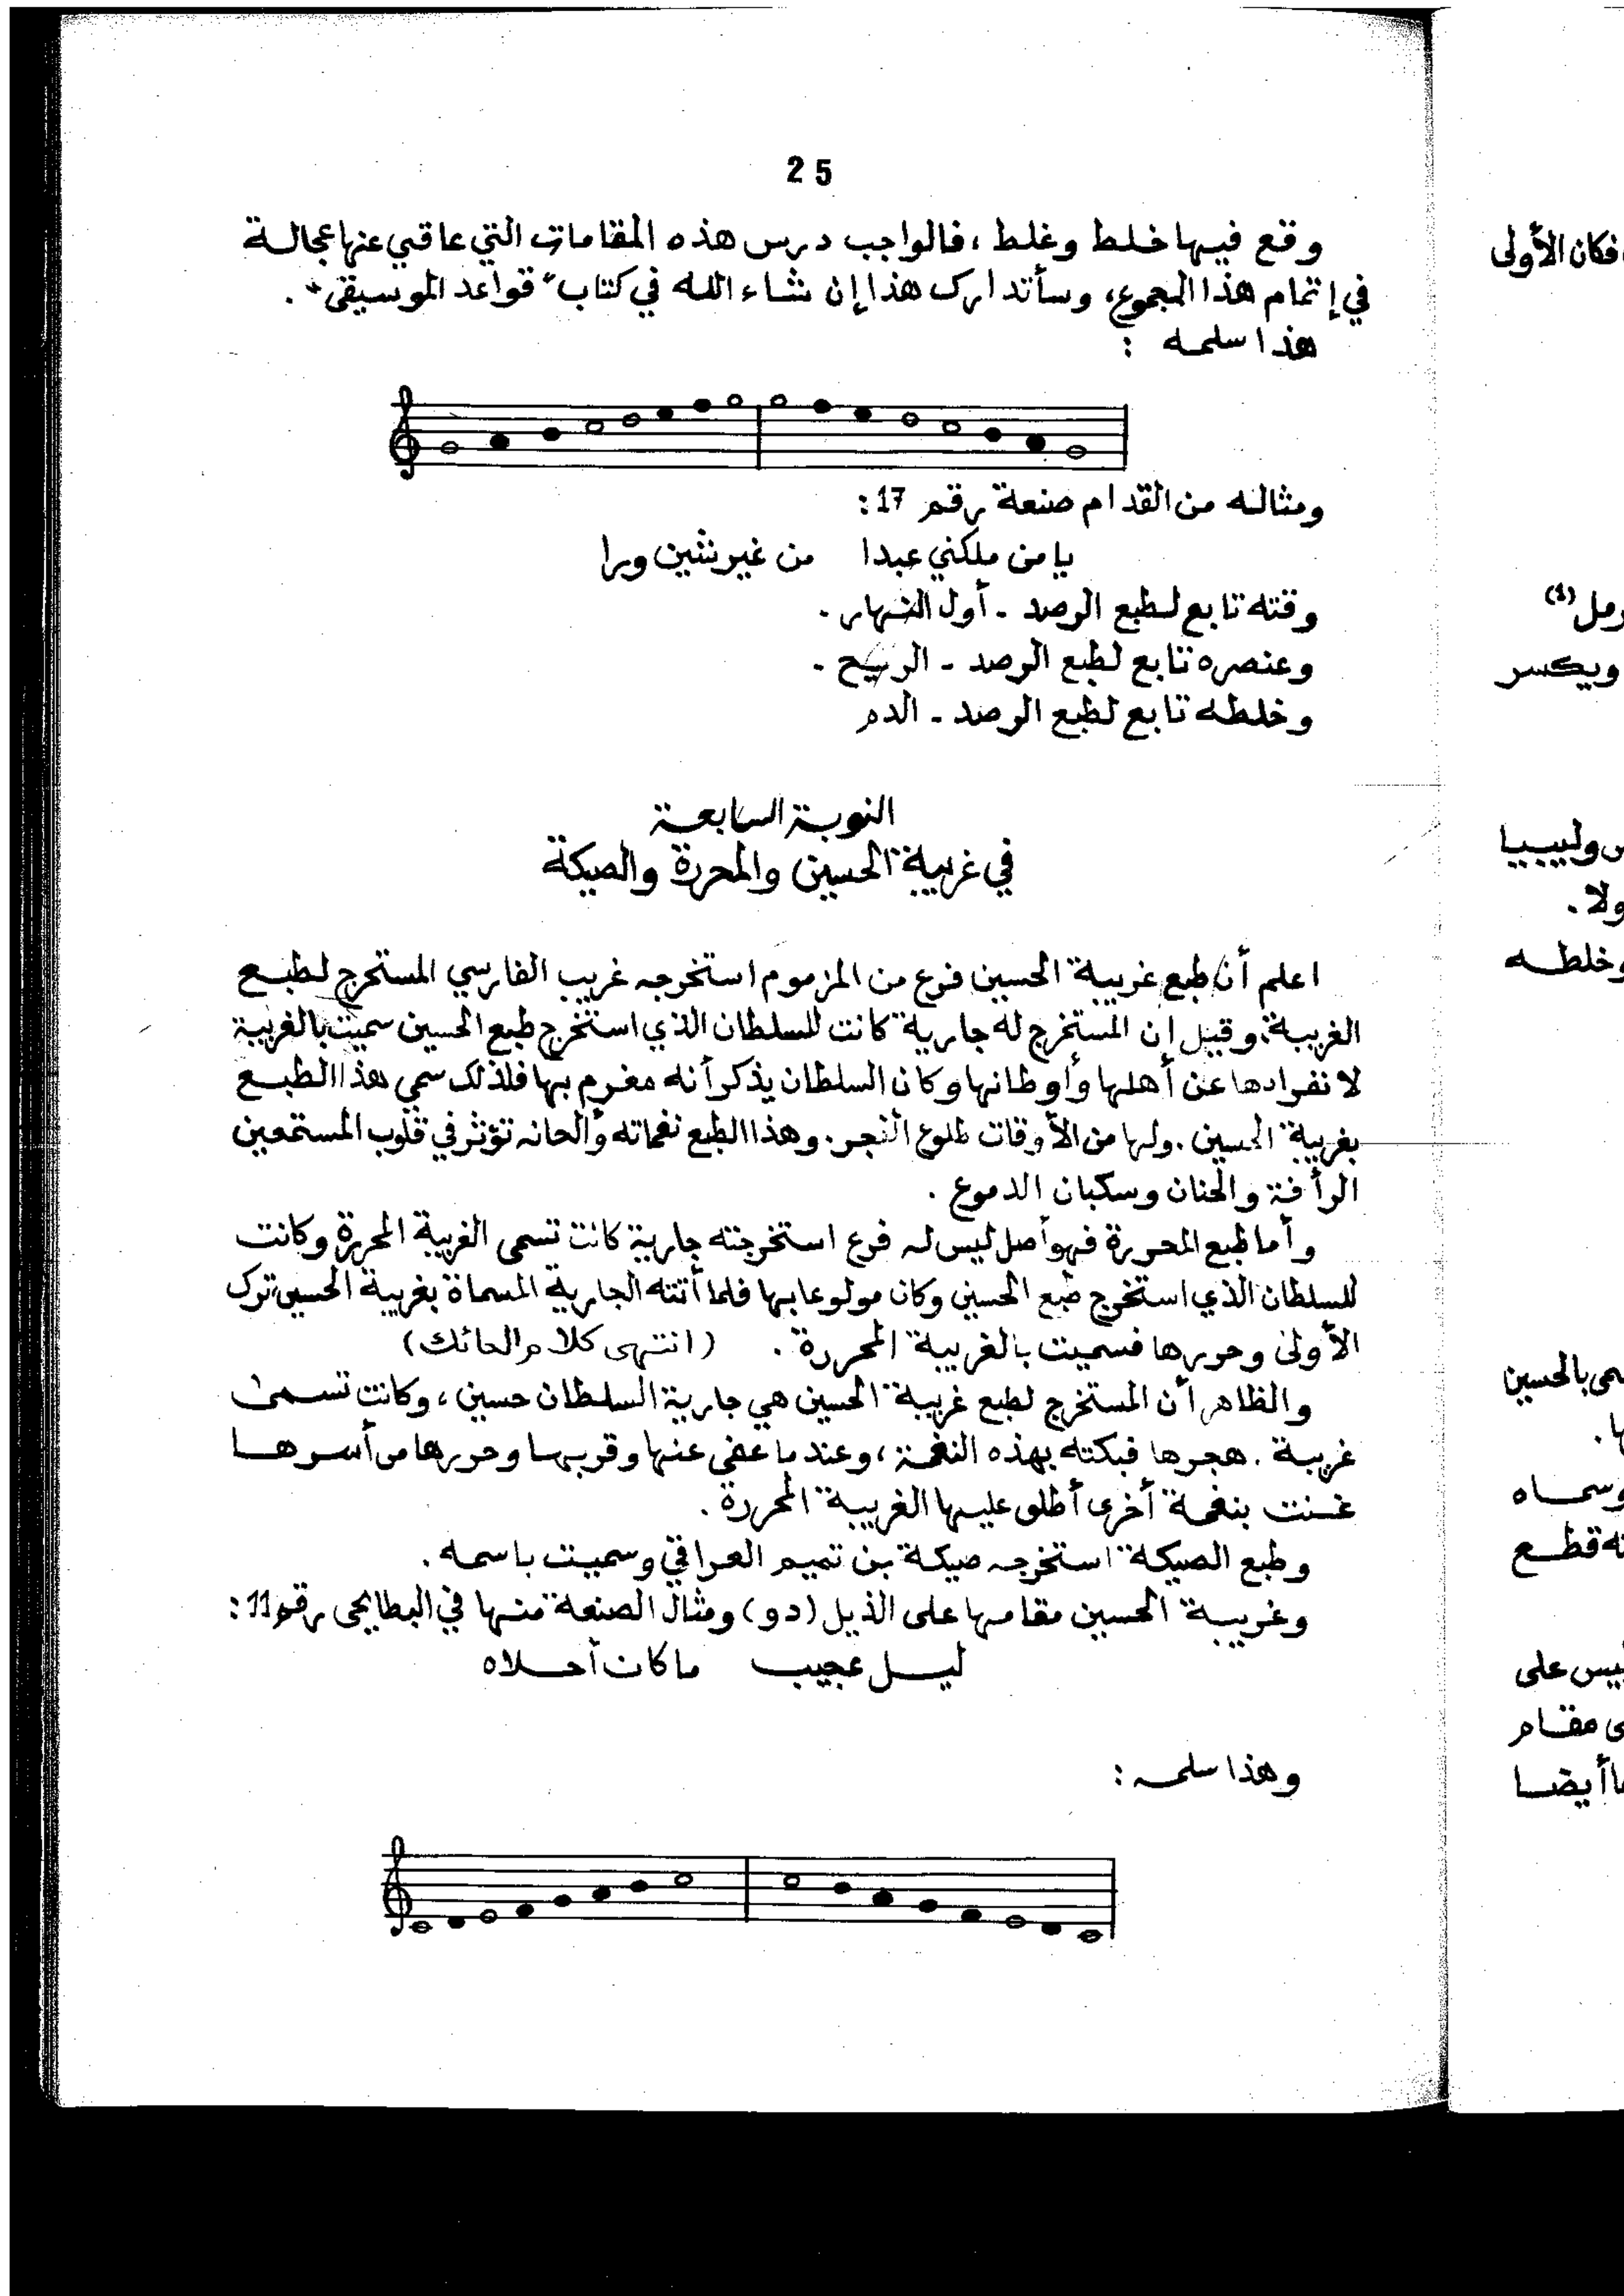 25
وقع فيها خلط وغلط ، فالواجب درس هذه المقامات التي عاقني عنها عجالة
في إتمام هذا المجموع، وسأتدارك هذا إن شاء الله في كتاب "قواعد الموسيقى" .
هذا سلمه :
ومثاله من القدام صنعة رقم 17 :
يا من ملكني عبدا من غير شين ورا
وقته تابع لطبع الرصد - أول النهار .
وعنصره تابع لطبع الرصد - الريح .
وخلطه تابع لطبع الرصد - الدم
النوبة السابعة
في غريبة الحسين والمحررة والصيكة
اعلم أن طبع غريبة الحسين فرع من المزموم استخرجه غريب الفارسي المستخرج لطبع
الغريبة، وقيل إن المستخرج له جارية كانت للسلطان الذي استخرج طبع الحسين سميت بالغريبة
لانفرادها عن أهلها وأوطانها وكان السلطان يذكر أنه مغرم بها فلذلك سمي هذا الطبع
بغريبة الحسين . ولها من الأوقات طلوع الفجر . وهذا الطبع نغماته وألحانه تؤثر في قلوب المستمعين
الرأفة والحنان وسكبان الدموع .
وأما طبع المحررة فهو أصل ليس له فرع استخرجته جارية كانت تسمى الغريبة المحررة وكانت
للسلطان الذي استخرج طبع الحسين وكان مولوعا بها فلما أتته الجارية المسماة بغريبة الحسين ترك
الأولى وحررها فسميت بالغريبة المحررة . (انتهى كلام الحائك)
والظاهر أن المستخرج لطبع غريبة الحسين هي جارية السلطان حسين ، وكانت تسمى
غريبة . هجرها فبكته بهذه النغمة ، وعندما عفى عنها وقربها وحررها من أسرها
غنت بنغمة أخرى أطلق عليها الغريبة المحررة .
وطبع الصيكة استخرجه صيكة بن تميم العراقي وسميت باسمه .
وغريبة الحسين مقامها على الذيل (دو) ومثال الصنعة منها في البطايحي رقم 11 :
ليل عجيب ما كان أحلاه
وهذا سلمه :
فكان الأولى
رمل (1)
ويكسر
وليبيا
ولا .
وخلطه
بالحسين
ها .
وسماه
قطع
ليس على
مقام
أيضا